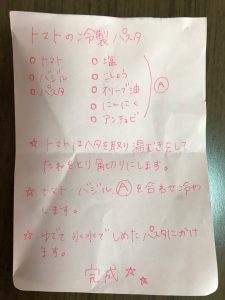 トマトの冷製パスタ
○ トマト ○ 塩
○ バジル ○ こしょう
○ パスタ ○ オリーブ油
○ にんにく
○ アンチョビ
Ⓐ
☆ トマトはヘタを取り湯むきをして
たねをとり角切りにします。
☆ トマト・バジル Ⓐ を合わせ冷や
します。
☆ ゆでて氷水でしめたパスタにかけ
ます。
完成☆☆